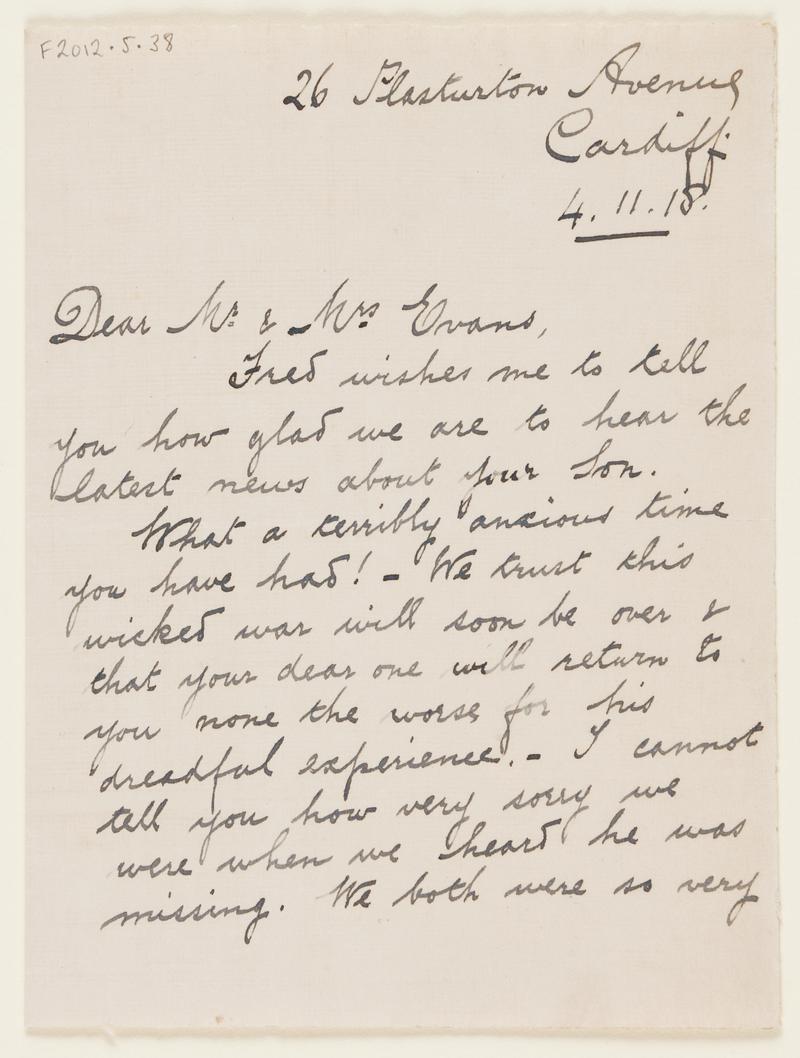 F2012.5.38
26 Plasturton Avenue
Cardiff.
4.11.18.
Dear Mr. & Mrs Evans,
Fred wishes me to tell
you how glad we are to hear the
latest news about your Son.
What a terribly anxious time
you have had! - We trust this
wicked war will soon be over &
that your dear one will return to
you none the worse for his
dreadful experience. - I cannot
tell you how very sorry we
were when we heard he was
missing. We both were so very